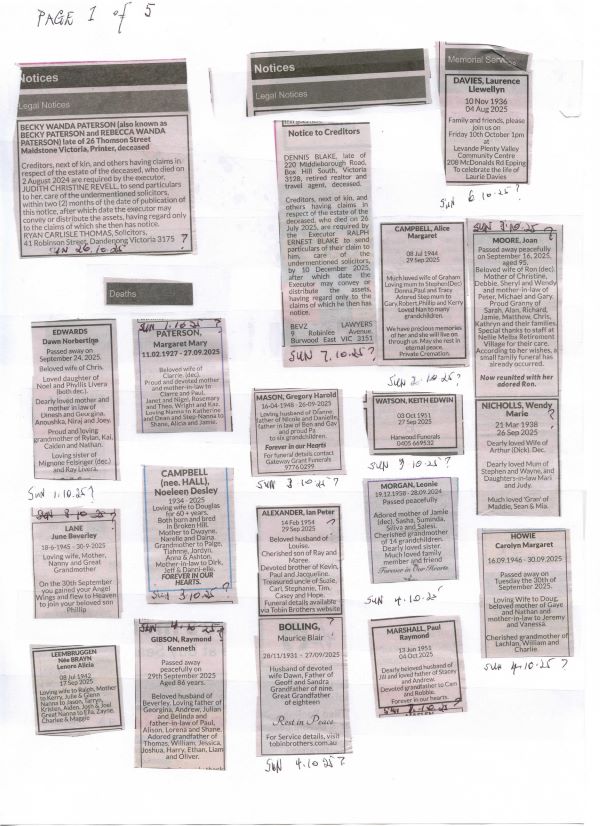 PAGE 1 of 5
Notices
Legal Notices
BECKY WANDA PATERSON (also known as
BECKY PATERSON and REBECCA WANDA
PATERSON) late of 26 Thomson Street
Maidstone Victoria, Printer, deceased
Creditors, next of kin, and others having claims in
respect of the estate of the deceased, who died on
2 August 2024 are required by the executor,
JUDITH CHRISTINE REVELL, to send particulars
to her, care of the undermentioned solicitors,
within two (2) months of the date of publication of
this notice, after which date the executor may
convey or distribute the assets, having regard only
to the claims of which she then has notice.
RYAN CARLISLE THOMAS, Solicitors,
41 Robinson Street, Dandenong Victoria 3175 ?
Notices
Legal Notices
Notice to Creditors
DENNIS BLAKE, late of
220 Middleborough Road,
Box Hill South, Victoria
3128, retired realtor and
travel agent, deceased.
Creditors, next of kin, and
others having claims in
respect of the estate of the
deceased, who died on 26
July 2025, are required by
the Executor RALPH
ERNEST BLAKE to send
particulars of their claim to
him, care of the
undermentioned solicitors,
by 10 December, 2025,
after which date the
Executor may convey or
distribute the assets,
having regard only to the
claims of which he then has
notice.
BEVZ LAWYERS
9 Robinlee Avenue,
Burwood East VIC 3151
SUN 7.10.25?
Memorial Services
DAVIES, Laurence
Llewellyn
10 Nov 1936
04 Aug 2025
Family and friends, please
join us on
Friday 10th October 1pm
at
Levande Plenty Valley
Community Centre
208 McDonalds Rd Epping
To celebrate the life of
Laurie Davies
SUN 6.10.25?
Deaths
EDWARDS
Dawn Norbertine
Passed away on
September 24, 2025.
Beloved wife of Chris.
Loved daughter of
Noel and Phyllis Livera
(both dec.).
Dearly loved mother
and mother-in-law of
Dinesh and Georgina,
Anoushka, Niraj and Joey.
Proud and loving
grandmother of Rylan, Kai,
Caiden and Nathan.
Loving sister of
Mignone Felsinger (dec.)
and Ray Livera.
SUN 1.10.25?
SUN 1.10.25?
PATERSON,
Margaret Mary
11.02.1927 - 27.09.2025
Beloved wife of
Clarrie, (dec).
Proud and devoted mother
and mother-in-law to
Clarrie and Paul,
Janet and Nigel, Rosemary
and Theo, Wright and Kaz.
Loving Nanna to Katherine
and Dean and Step-Nanna to
Shane, Alicia and Jamie.
CAMPBELL, Alice
Margaret
08 Jul 1944
29 Sep 2025
Much loved wife of Graham
Loving mum to Stephen(Dec)
Donna,Paul and Tracy
Adored Step mum to
Gary,Robert,Phillip and Kerry
Loved Nan to many
grandchildren.
We have precious
memories of her and she will live on
through us. May she rest in
eternal peace.
Private Cremation.
MOORE, Joan
Passed away peacefully
on September 16, 2025,
aged 95.
Beloved wife of Ron (dec).
Mother of Christine,
Debbie, Sheryl and Wendy
and mother-in-law of
Peter, Michael and Gary.
Proud Granny of
Sarah, Alan, Richard,
Jamie, Matthew, Chris,
Kathryn and their families.
Special thanks to staff at
Nellie Melba Retirement
Village for their care.
According to her wishes, a
small family funeral has
already occurred.
Now reunited with her
adored Ron.
MASON, Gregory Harold
16-04-1948 - 26-09-2025
Loving husband of Dianne,
father of Nicole and Danielle,
father in law of Ben and Gav
and proud Pa
to six grandchildren.
Forever in our Hearts
For funeral details contact
Gateway Grant Funerals
9776 0299
SUN 3.10.25?
WATSON, KEITH EDWIN
03 Oct 1951
27 Sep 2025
Harwood Funerals
0405 669532
NICHOLLS, Wendy
Marie ?
21 Mar 1938
26 Sep 2025
Dearly loved Wife of
Arthur (Dick). Dec.
Dearly loved Mum of
Stephen and Wayne, and
Daughters-in-law Mari
and Judy.
Much loved 'Gran' of
Maddie, Sean & Mia.
CAMPBELL
(nee. HALL),
Noeleen Desley
1934 - 2025
Loving wife to Douglas
for 60+ years.
Both burn and bred
in Broken Hill.
Mother to Dwayne,
Narelle and Daina.
Grandmother to Paige,
Tiahnne, Jordyn,
Anna & Ashton.
Mother-in-law to Dirk,
Jeff & Danni-elle.
FOREVER IN OUR
HEARTS.
SUN 3.10.25
LANE
June Beverley
18-6-1945 - 30-9-2025
Loving wife, Mother,
Nanny and Great
Grandmother
On the 30th September
you gained your Angel
Wings and flew to Heaven
to join your beloved son
Phillip
ALEXANDER, Ian Peter
14 Feb 1954
29 Sep 2025
Beloved husband of
Louise.
Cherished son of Ray and
Maree.
Devoted brother of Kevin,
Paul and Jacqueline.
Treasured uncle of Suzie,
Carl, Stephanie, Tim,
Casey and Hope.
Funeral details available
via Tobin Brothers website
MORGAN, Leonie
19.12.1938 - 28.09.2024
Passed peacefully
Adored mother of Jamie
(dec), Sasha, Suminda,
Siliva and Salesi.
Cherished grandmother
of 14 grandchildren.
Dearly loved sister.
Much loved family
member and friend
Forever in Our Hearts
SUN 4.10.25
HOWIE
Carolyn Margaret
16.09.1946 - 30.09.2025
Passed away on
Tuesday the 30th of
September 2025.
Loving Wife to Doug,
beloved mother of Gaye
and Nathan and
mother-in-law to Jeremy
and Vanessa.
Cherished grandmother of
Lachlan, William and
Charlie.
SUN 4.10.25?
LEEMBRUGGEN
Née BRAYN
Lenore Alicia
08 Jul 1942
17 Sep 2025
Loving wife to Ralph, Mother
to Kerry, Julie & Glenn
Nanna to Jason, Tarryn,
Kristen, Aiden, Josh & Joel
Great Nanna to Ella, Zayse,
Charlee & Maggie
GIBSON, Raymond
Kenneth
Passed away
peacefully on
29th September 2025
Aged 86 years.
Beloved husband of
Beverley. Loving father of
Georgina, Andrew, Julian
and Belinda and
father-in-law of Paul,
Alison, Lorena and Shane.
Adored grandfather of
Thomas, William, Jessica,
Joshua, Harry, Ethan, Liam
and Oliver.
BOLLING,
Maurice Blair
28/11/1931 - 27/09/2025
Husband of devoted
wife Dawn, Father of
Geoff and Sandra
Grandfather of nine.
Great Grandfather
of eighteen
Rest in Peace
For Service details, visit
tobinbrothers.com.au
SUN 4.10.25?
MARSHALL, Paul
Raymond
13 Jun 1951
04 Oct 2025
Dearly beloved husband of
Jill and loved father of Stacey
and Andrew.
Devoted grandfather to Cam
and Robbie.
Forever in our hearts.